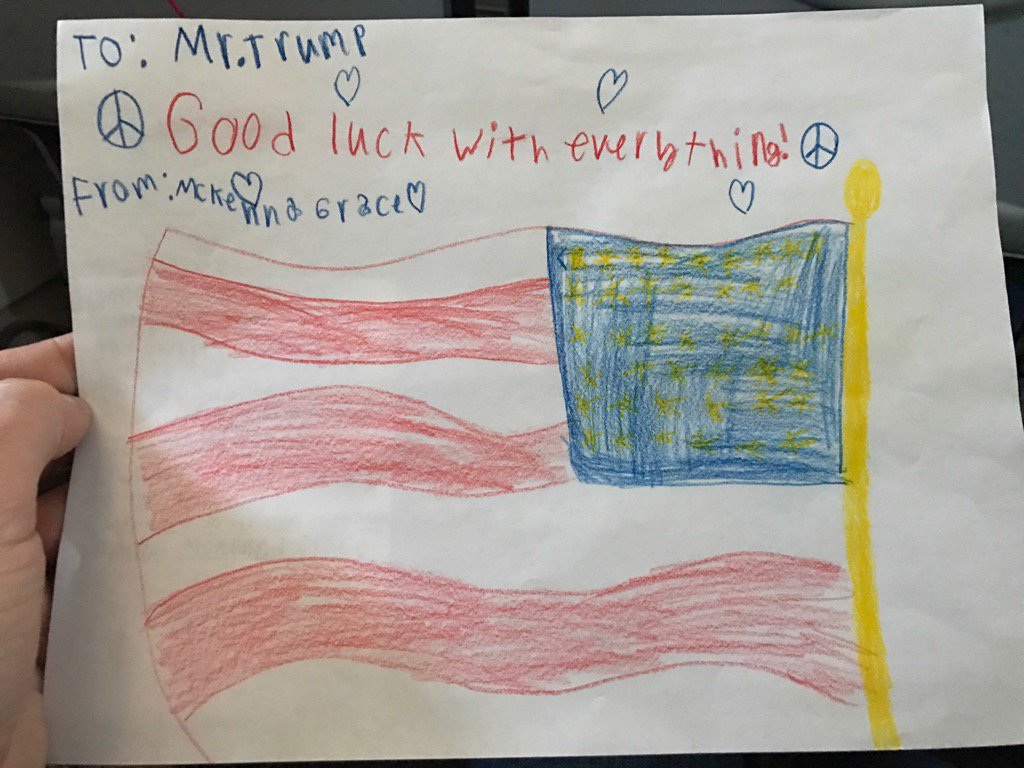 TO: Mr.Trump
Good luck with everything!
From: McKenna Grace